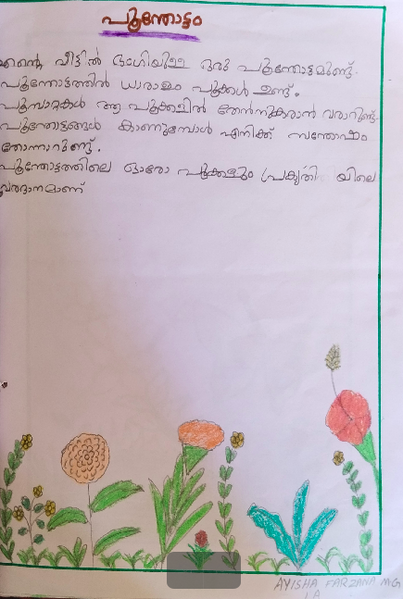 പൂന്തോട്ടം
എന്റെ വീട്ടിൽ ഭംഗിയുള്ള ഒരു പൂന്തോട്ടമുണ്ട്.
പൂന്തോട്ടത്തിൽ ധാരാളം പൂക്കൾ ഉണ്ട്.
പൂമ്പാറ്റകൾ ആ പൂക്കളിൽ തേൻനുകരാൻ വരാറുണ്ട്.
പൂന്തോട്ടങ്ങൾ കാണുമ്പോൾ എനിക്ക് സന്തോഷം
തോന്നാറുണ്ട്.
പൂന്തോട്ടത്തിലെ ഓരോ പൂക്കളും പ്രകൃതി യിലെ
വരദാനമാണ്
AYISHA FARZANA M.G
1 A